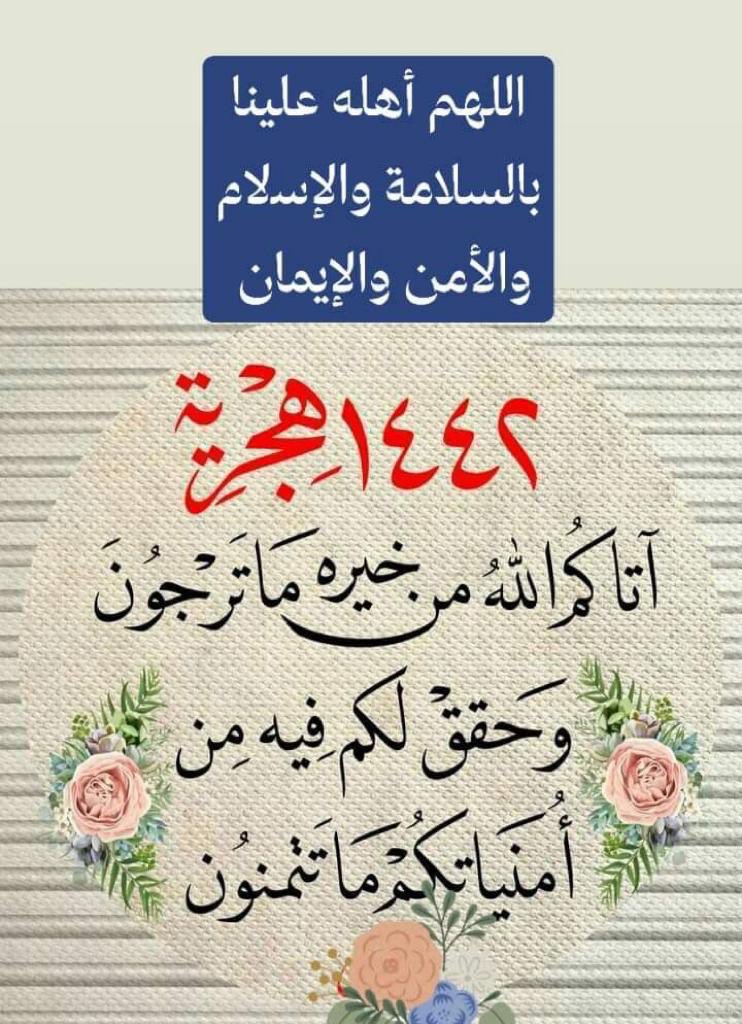 اللهم أهله علينا
بالسلامة والإسلام
والأمن والإيمان
١٤٤٢ هِجْرِيَّة
آتاكُمُ اللهُ من خيره مَا تَرْجُونَ
وَحَققْ لَكم فِيه مِن
أُمنَيَاتكُمْ مَا تَتمنوُن